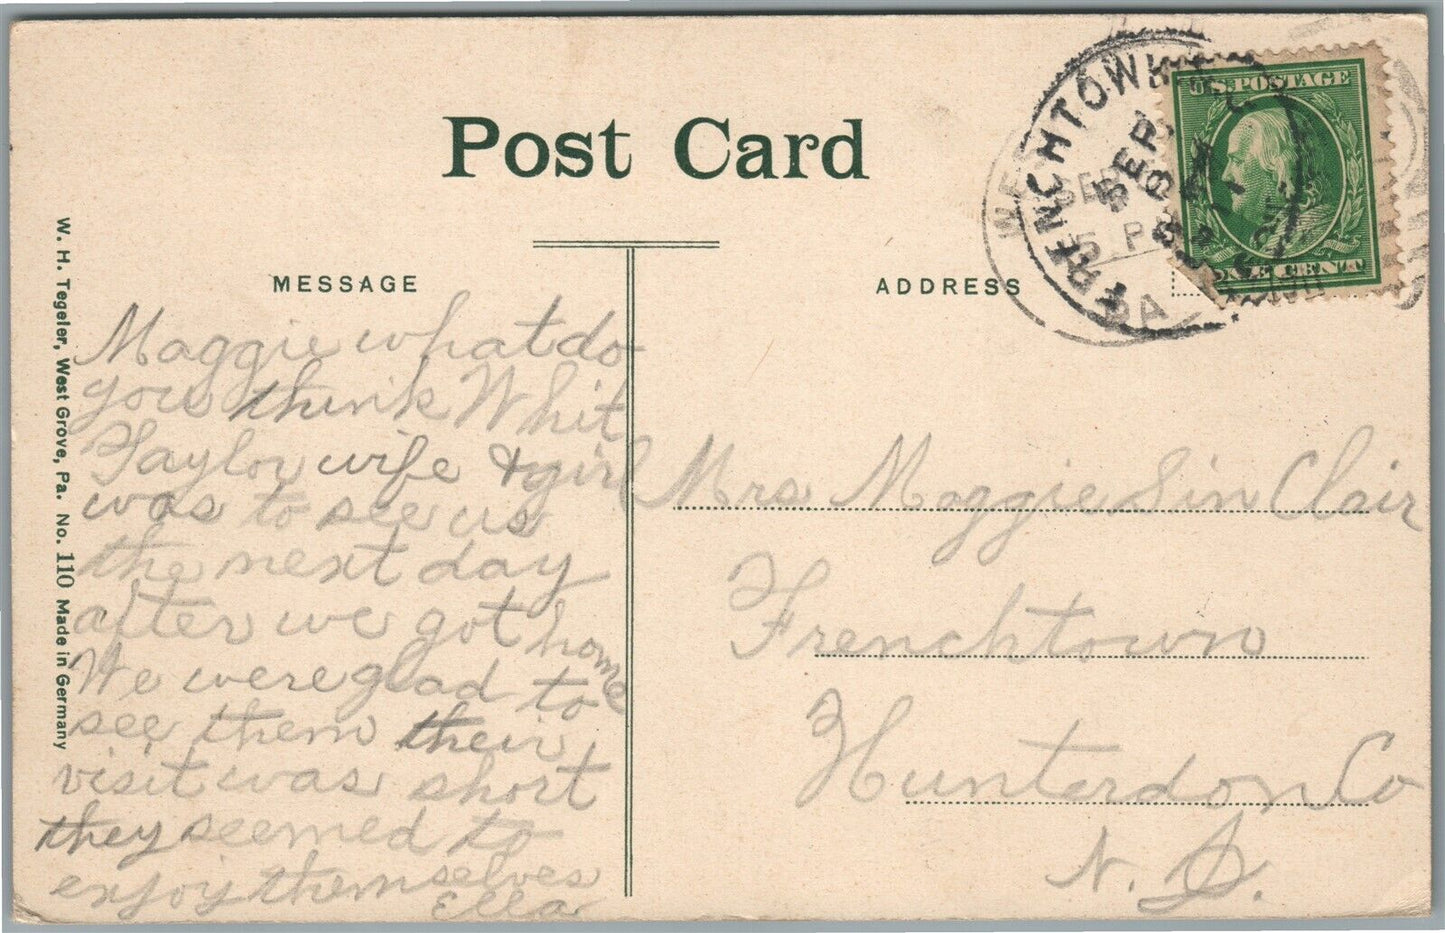 Post Card
MESSAGE
ADDRESS
W. H. Tegeler, West Grove, Pa. No. 110 Made in Germany
FRENCHTOWN
SEP
SEP
5 P
PA
U.S. POSTAGE
ONE CENT
Maggie what do
you think Whit
Taylor wife & girl
was to see us
the next day
after we got home
We were glad to
see them their
visit was short
they seemed to
enjoy themselves
Ella
Mrs Maggie Sin Clair
Frenchtown
Hunterdon Co
N. J.